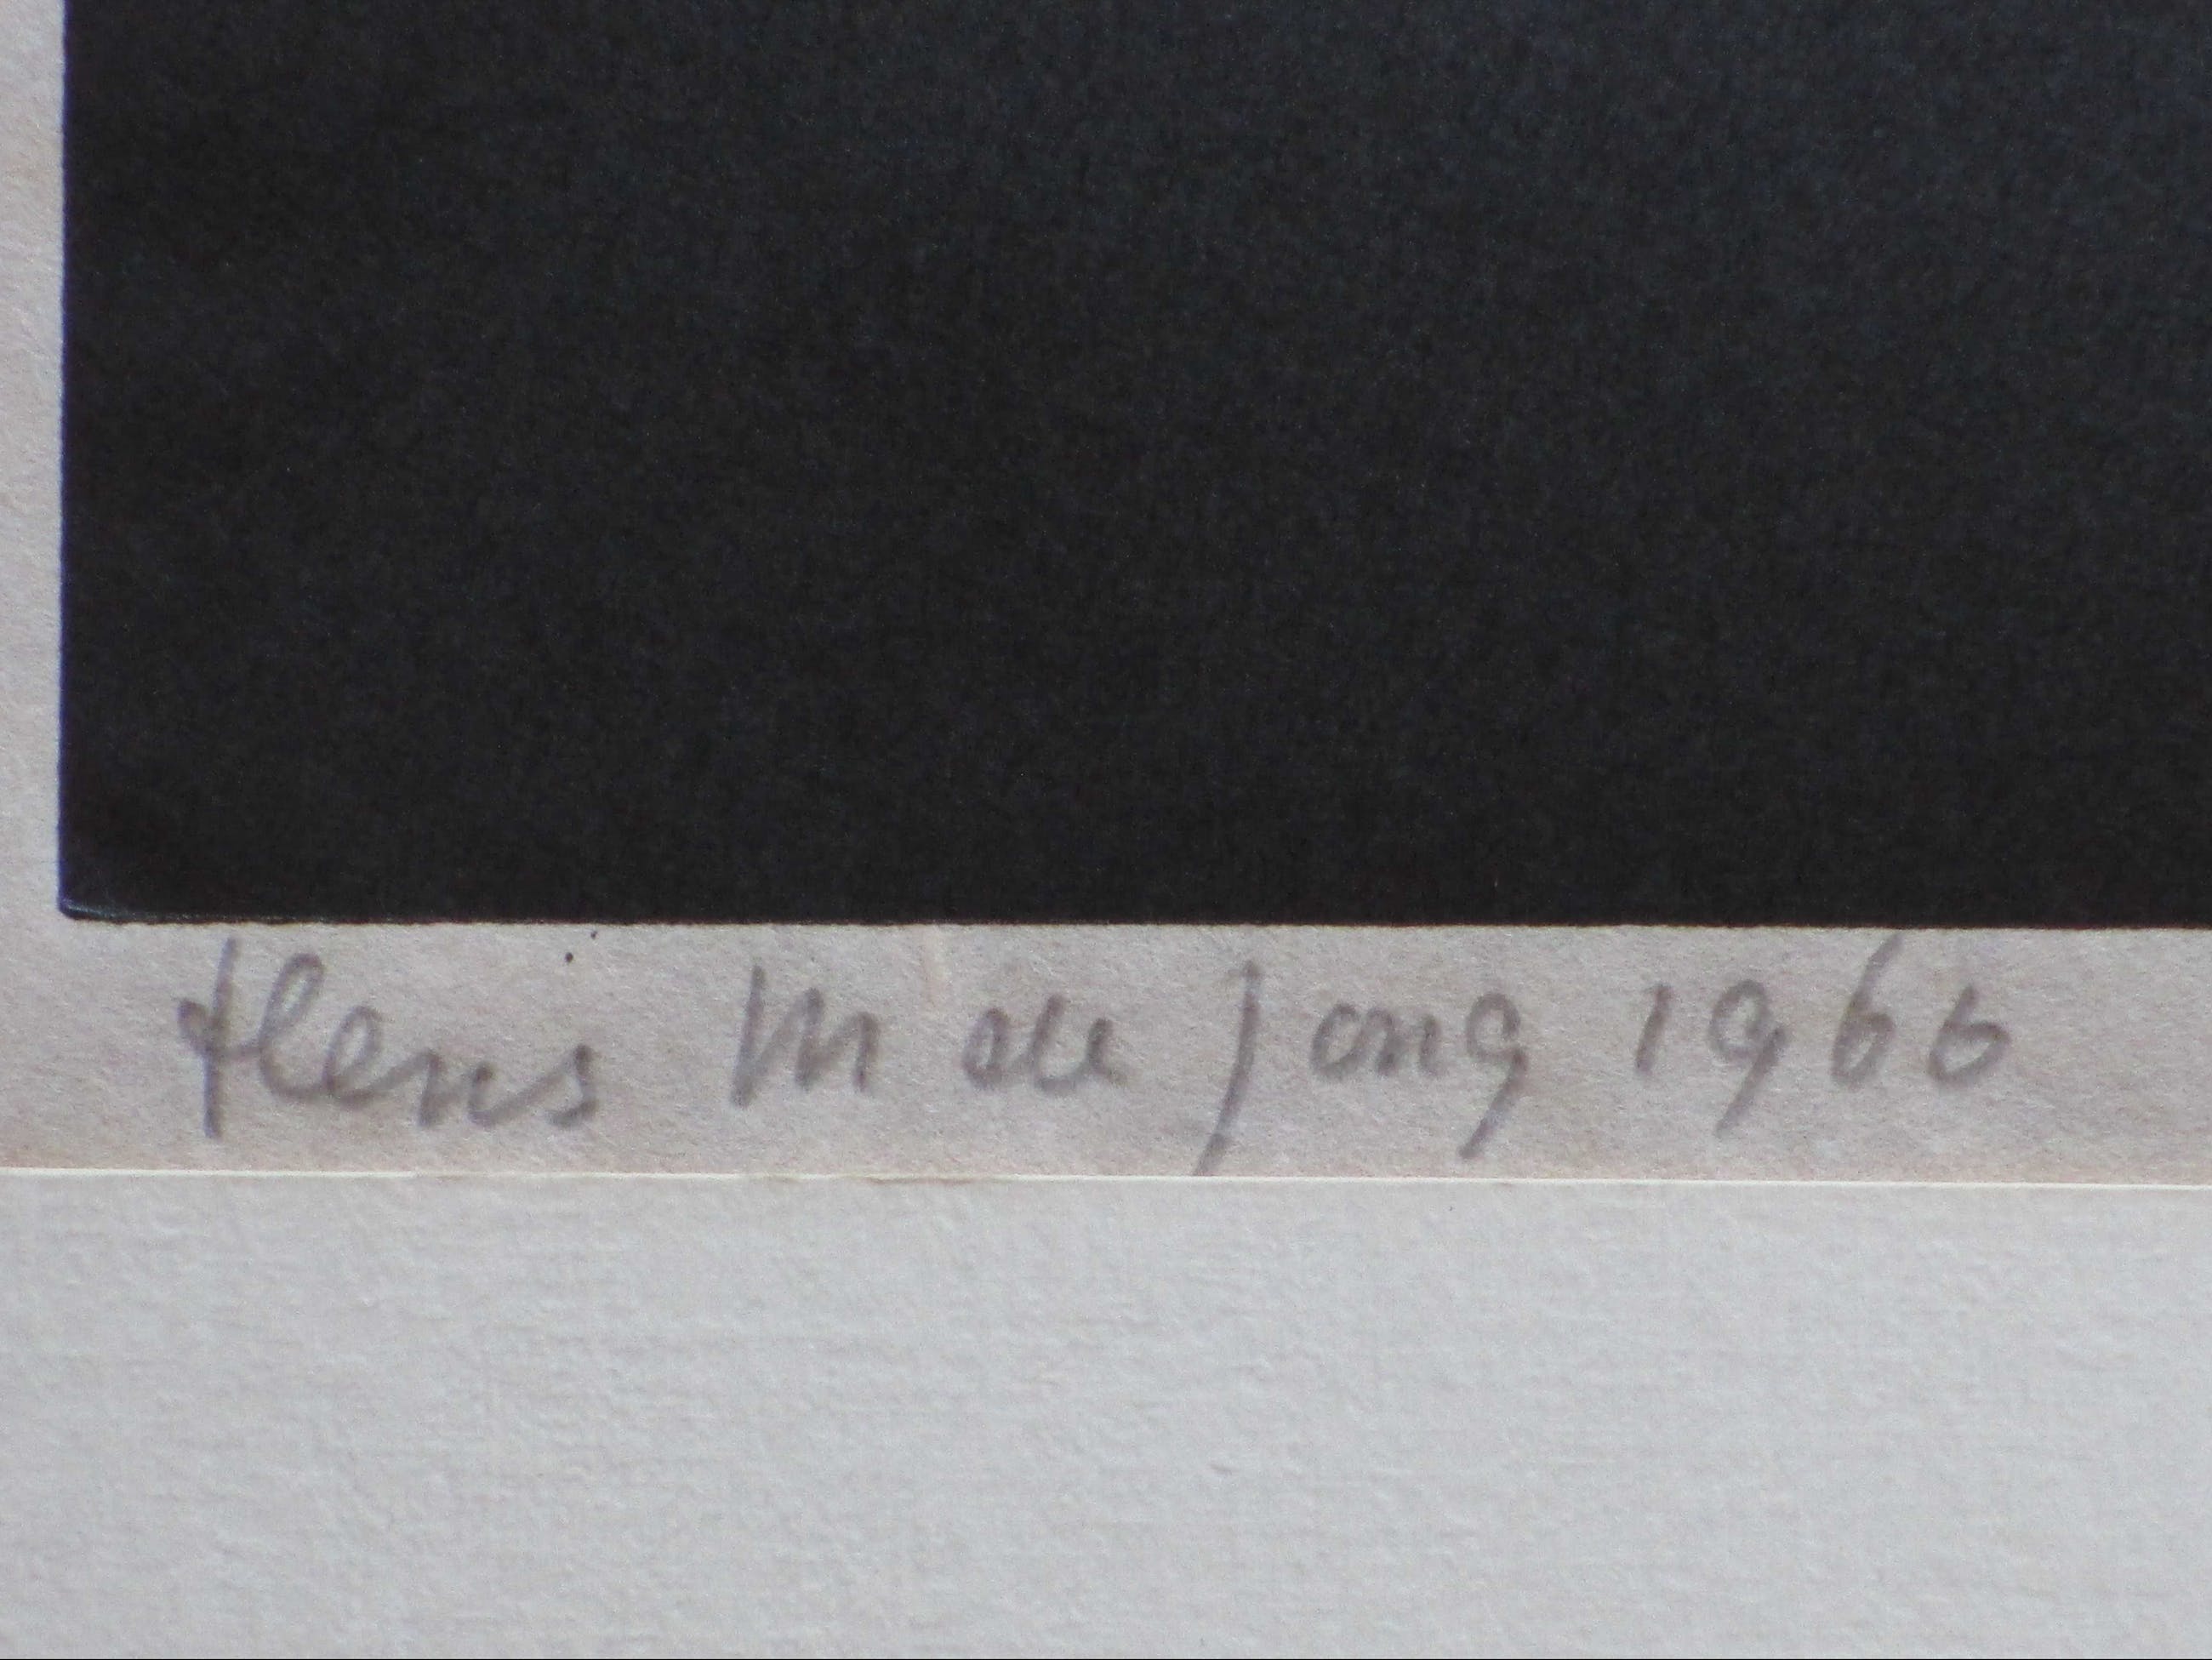 Hens M de Jong 1966